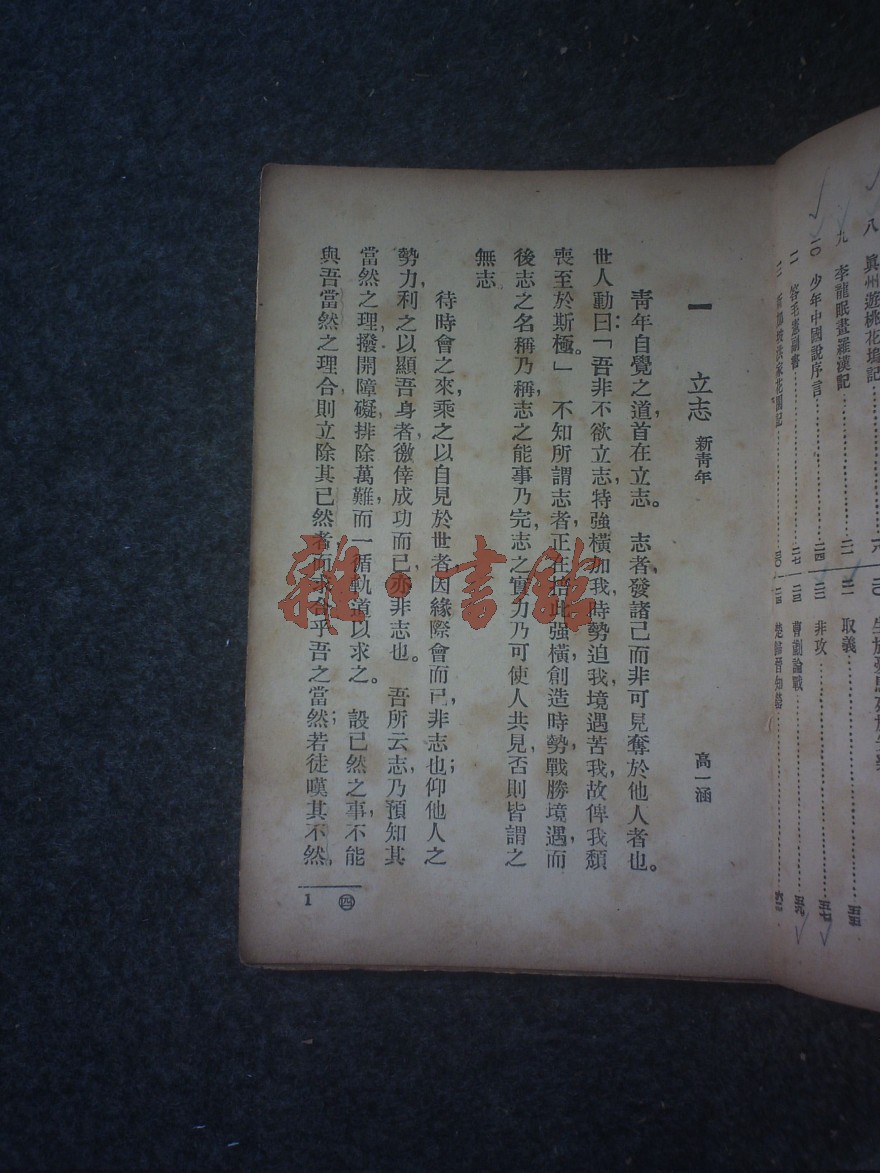 八　眞州遊桃花塢記
九　李龍眠畫羅漢記……二一
一〇　少年中國說序言……二四
一一　答毛憲副書……二七
二一　取義……五五
二二　非攻……五七
二三　曹劌論戰……五九
二四　楚歸晉知罃……六二
一　立志　新青年　高一涵
青年自覺之道，首在立志。　志者，發諸己而非可見奪於他人者也。
世人動曰：「吾非不欲立志，特強橫加我，時勢迫我，境遇苦我，故俾我頹
喪至於斯極。」　不知所謂志者，正在捨此强橫，創造時勢，戰勝境遇，而
後志之名稱乃稱，志之能事乃完，志之實力乃可使人共見，否則皆謂之
無志
待時會之來，乘之以自見於世者，因緣際會而已，非志也；仰他人之
勢力，利之以顯吾身者，徼倖成功而已，亦非志也。　吾所云志，乃預知其
當然之理，撥開障礙，排除萬難，而一循軌道以求之。　設已然之事，不能
與吾當然之理合，則立除其已然者，而求合乎吾之當然；若徒嘆其不然，
㊃
1
雜·書館